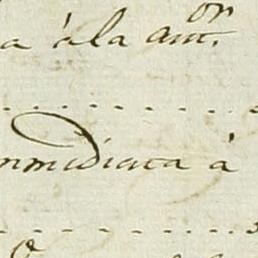 a à la ant.or
inmediata à